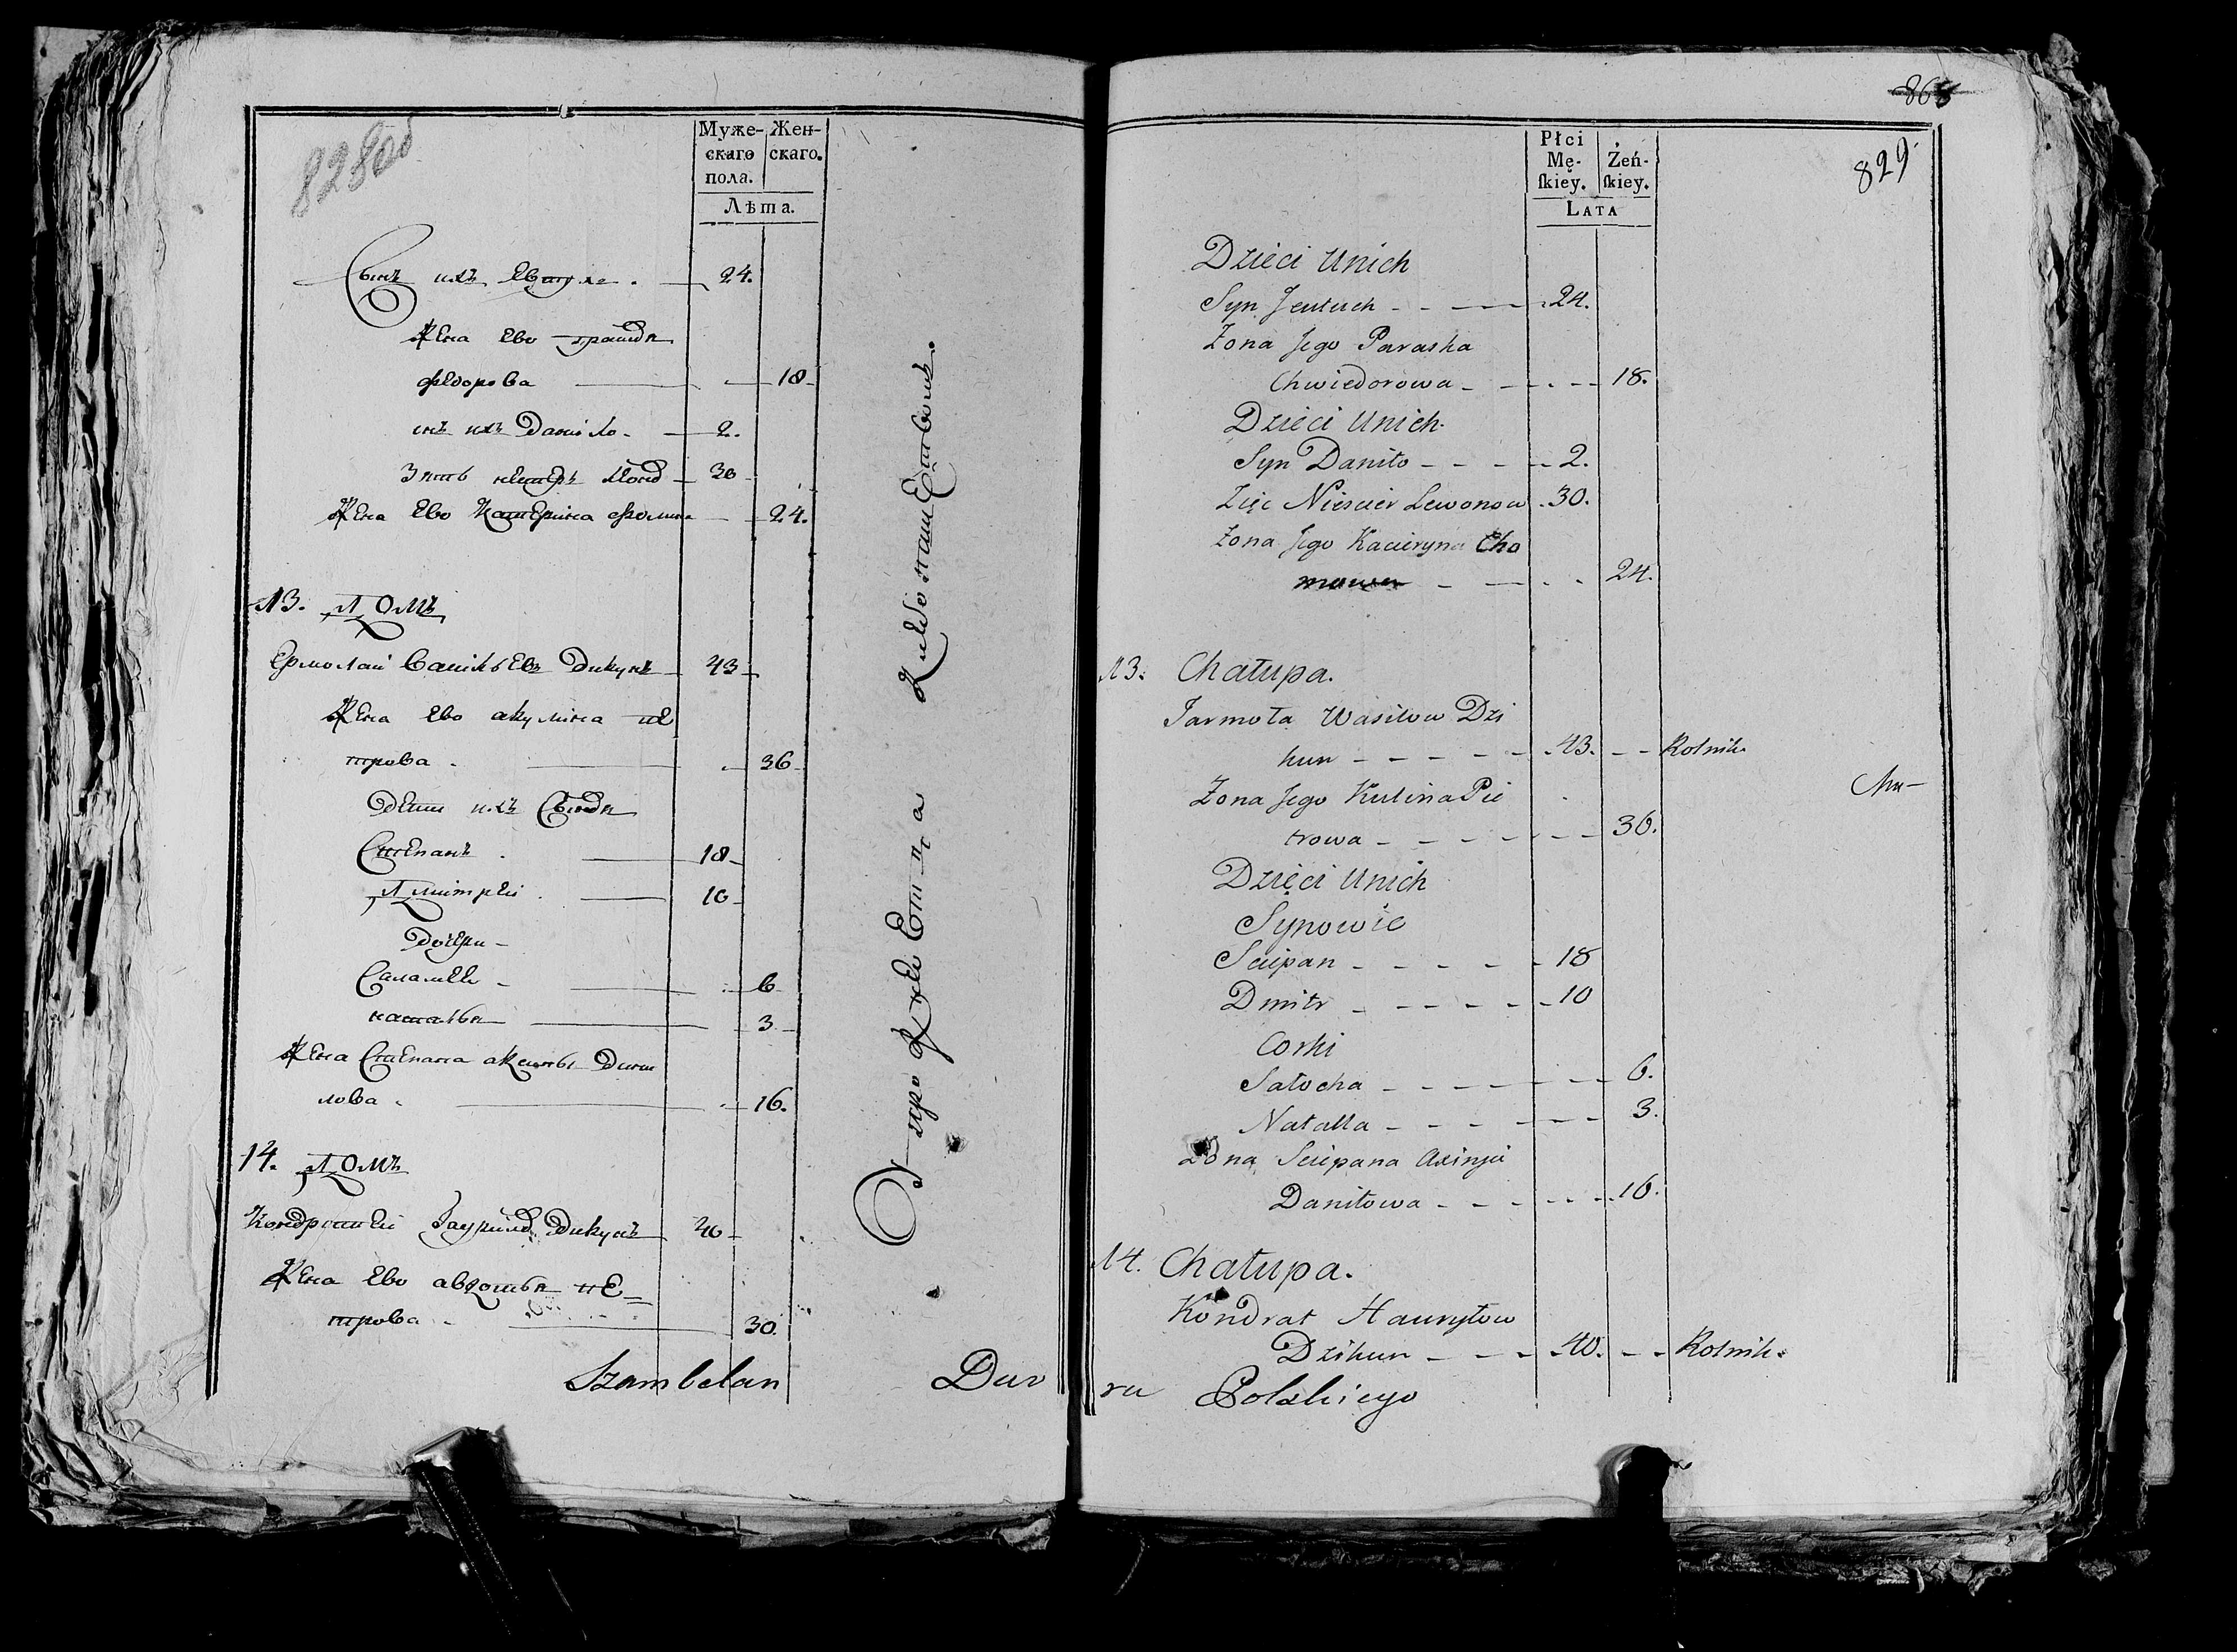 828об
Муже-
скаго
пола.
Жен-
скаго.
Лѣта.
Сынъ ихъ Евтухъ. 24.
Жена Ево Прасковья
Федорова 18
Сынъ ихъ Данило. 2.
Зять Нестеръ 30
Жена Ево Катерина Фомина 24.
13. ДОМЪ
Ермолай Васильевъ Дикунъ 43
Жена Ево Акулина Пе
трова 36
Дети ихъ Сыновья
Степанъ 18
Дмитрей 10
Дочери
6
Наталья 3
Жена Степана Аксинья Дани
лова 16.
14. ДОМЪ
Кондратей Гаурилов Дикунъ 40
Жена Ево Авдотья Пе=
трова 30.
Szambelan Dwo
865
829
Płci
Mę-
ſkiey.
Żeń-
ſkiey.
LATA
Dzieci Unich
Syn Jeutuch 24.
Żona Jego Paraska
Chwiedorowa 18.
Dzieci Unich
Syn Daniło 2.
Zięć Niescier Lewonow 30.
Żona Jego Kacieryna Cho
24.
13. Chałupa.
Jarmoła Wasilow Dzi
kun 43. Rolnik
Żona Jego Kulina Pie
trowa 36.
Dzieci Unich
Synowie
Sciepan 18
Dmitr 10
Corki
Sałocha 6.
Natalla 3.
Żona Sciepana Axinja
Daniłowa 16.
14. Chałupa.
Kondrat Hauryłow
Dzikun 40. Rolnik.
ru Polskiego